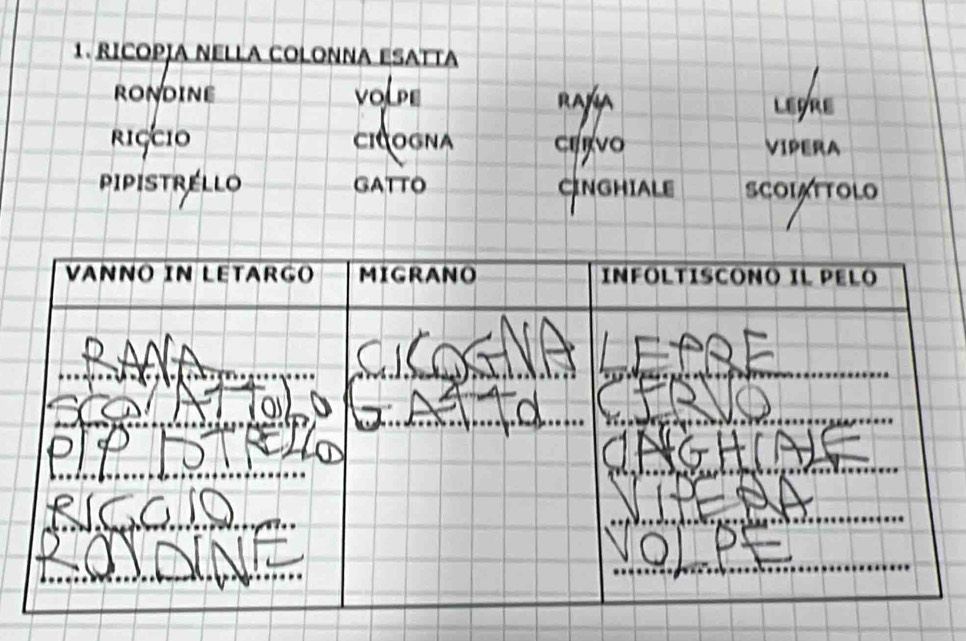 1. RICOPIA NELLA COLONNA ESATTA
RONDINE VOLPE RANA LEPRE
RICCIO CICOGNA CERVO VIPERA
PIPISTRELLO GATTO CINGHIALE SCOIATTOLO
VANNO IN LETARGO MIGRANO INFOLTISCONO IL PELO
RANA CICOGNA LEPRE
SCOIATTOLO GATTO CERVO
PIPISTRELLO CINGHIALE
RICCIO VIPERA
RONDINE VOLPE